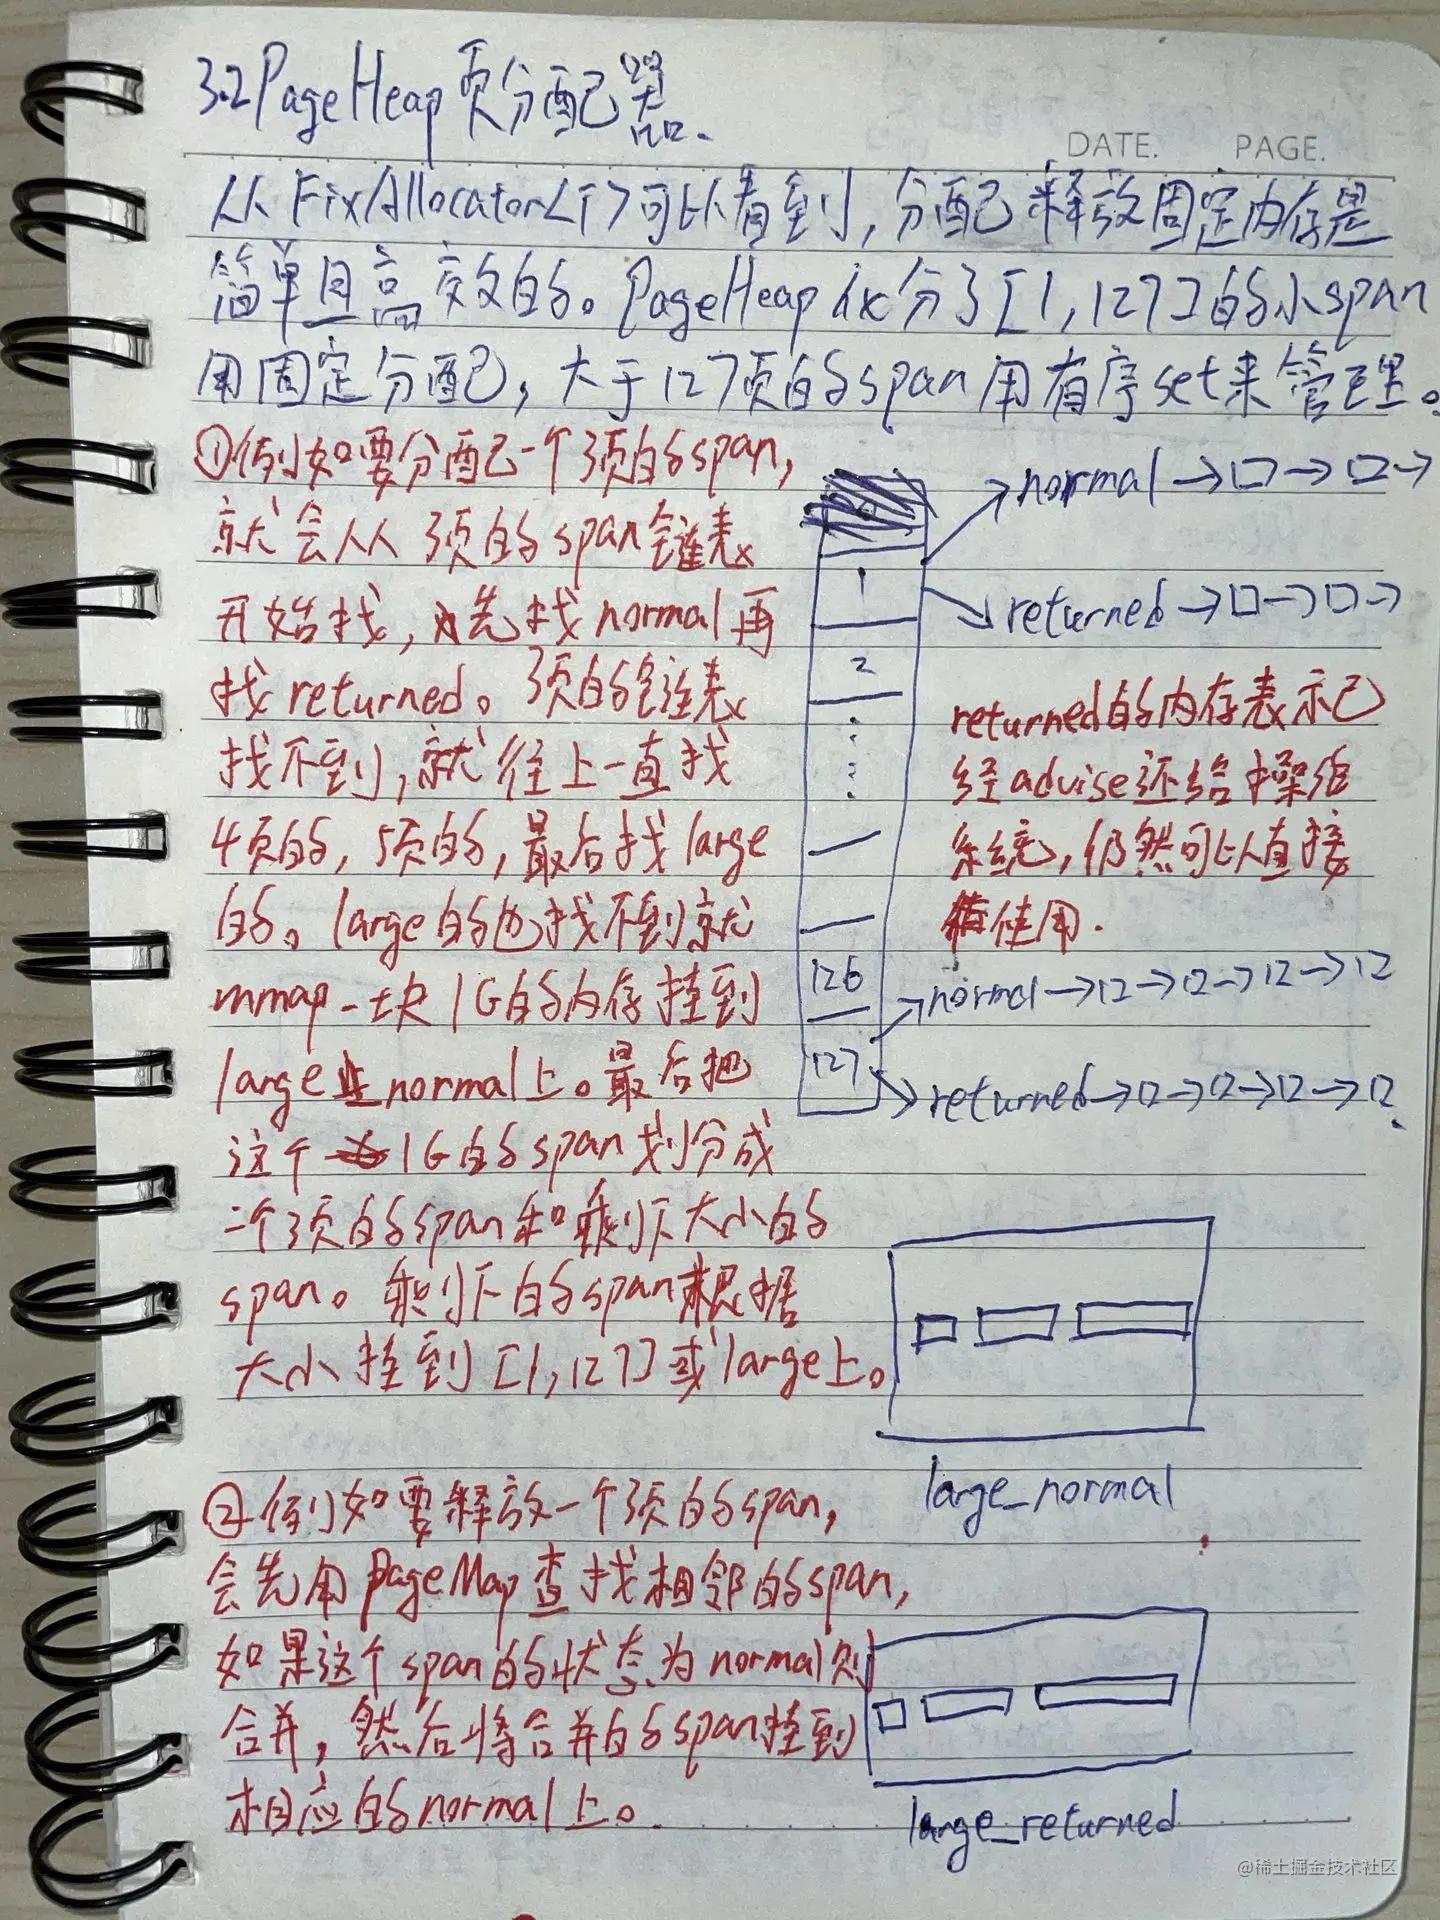 3.2 PageHeap 页分配器.
DATE. PAGE.
从FixAllocator<T>可以看到,分配释放固定内存是
简单且高效的。PageHeap 区分了[1,127]的小span
用固定分配,大于127页的span用有序set来管理。
①例如要分配一个3页的span,
就会从 3页的span链表
开始找,先找normal再
找returned。3页的链表
找不到,就往上一直找
4页的,5页的,最后找large
的。large的也找不到就
mmap一块1G的内存挂到
large normal上。最后把
这个1G的span划分成
一个3页的span和剩下大小的
span。剩下的span根据
大小挂到[1,127]或large上。
②例如要释放一个3页的span,
会先用PageMap查找相邻的span,
如果这个span的状态为normal则
合并,然后将合并的span挂到
相应的normal上。
normal
1
returned
2
returned的内存表示已
经advise还给操作
系统,仍然可以直接
使用.
126
normal
127
returned
large_normal
large_returned
@稀土掘金技术社区